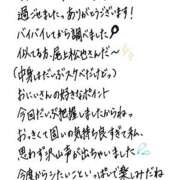 過ごせました。ありがとうございます！
バイバイしてから調べました
似てる方、尾上松也さんだ〜
(中身はだいぶスケベだけどっ)
おにぃさんの好きなポイント
今回だいぶ把握しましたからねっ
おっきくて固いの気持ち良すぎて私、
思わず沢山声が出ちゃいました
今度からシたいこといっぱいで楽しみだね